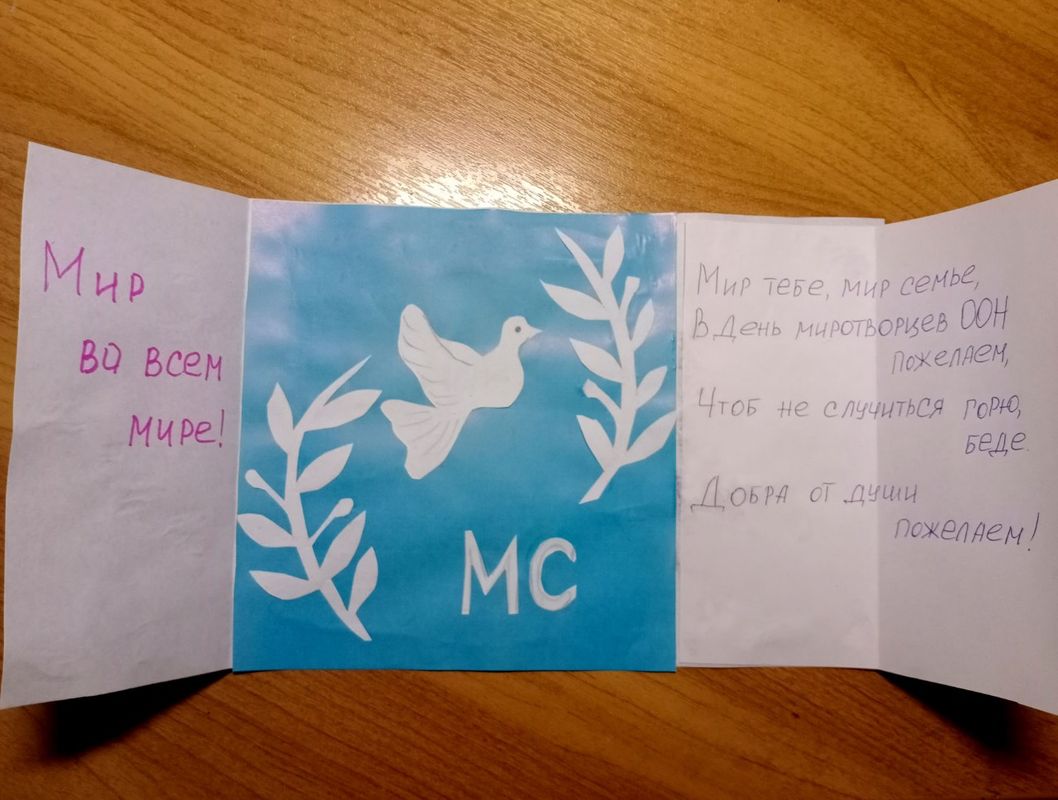 Мир
во всем
мире!
МС
Мир тебе, мир семье,
В День миротворцев ООН
пожелаем,
Чтоб не случиться горю,
беде.
Добра от души
пожелаем!